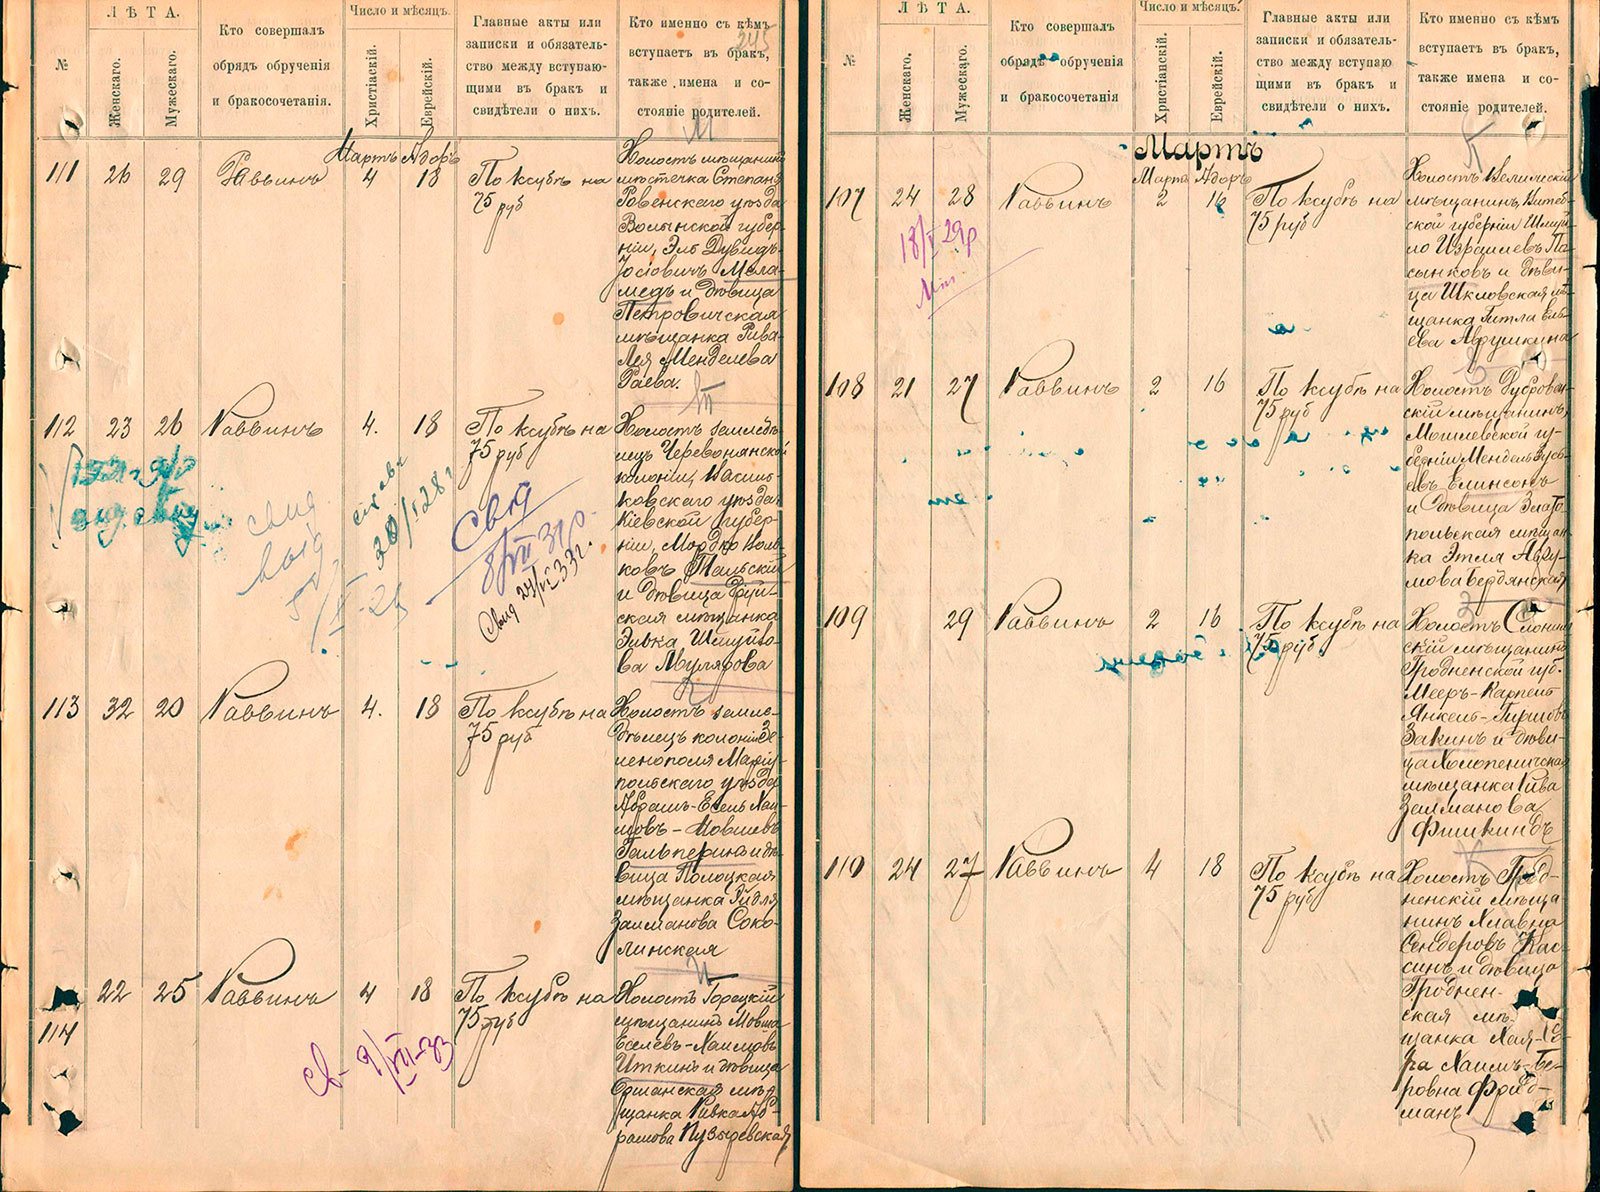 ЛѢТА.
Число и мѣсяцъ.
№
Женскаго.
Мужескаго.
Кто совершалъ
обрядъ обрученія
и бракосочетанія.
Христіаскій.
Еврейскій.
Главные акты или
записки и обязатель-
ство между вступаю-
щими въ бракъ и
свидѣтели о нихъ.
Кто именно съ кѣмъ
вступаетъ въ бракъ,
также имена и со-
стояніе родителей.
245
Мартъ Адоръ
111 26 29 Раввинъ 4 18 По ксубѣ на
75 руб
Холостъ мѣщанинъ
мѣстечка Степанъ
Ровенскаго уѣзда
Волынской губер-
ніи, Эль Дувидъ
Іосіовичъ Мела-
медъ и дѣвица
Петровичская
мѣщанка Рива
Лея Менделева
Раева.
112 23 26 Раввинъ 4. 18 По ксубѣ на
75 руб
Холостъ землебѣ-
лецъ Черевонянской
колоніи, Василь-
ковскаго уѣзда
Кіевской губер-
ніи, Мордко Воль-
ковъ Тальскій
и дѣвица
ская мѣщанка
Элька Шмуйло-
ва Авулярова
свид
выд
свид
8/VII 31г.
Свид 23/VI 33г.
20/I 28г
113 32 20 Раввинъ 4. 18 По ксубѣ на
75 руб
Холостъ земле-
дѣлецъ колоніи Зе-
ленополя Маріу-
польскаго уѣзда
Абрамъ-Есель Хаи-
мовъ-Мовшевъ
Гальперинъ и дѣ-
вица Полоцкая
мѣщанка Эйдля
Залманова Соко-
линская
114 22 25 Раввинъ 4 18 По ксубѣ на
75 руб
Холостъ Горецкій
мѣщанинъ Мовша
Еселевъ-Хаимовъ
Иткинъ и дѣвица
Оршанская мѣ-
щанка Ривка Аб-
рамова Пузыревская
св- 9/VII-33
ЛѢТА.
Число и мѣсяцъ.
№
Женскаго.
Мужескаго.
Кто совершалъ
обрядъ обрученія
и бракосочетанія
Христіанскій.
Еврейскій.
Главные акты или
записки и обязатель-
ство между вступаю
щими въ бракъ и
свидѣтели о нихъ.
Кто именно съ кѣмъ
вступаетъ въ бракъ,
также имена и со-
стояніе родителей.
Мартъ
Мартъ Адоръ
107 24 28 Раввинъ 2 16 По ксубѣ на
75 руб
Холостъ Велижскій
мѣщанинъ, Витеб-
ской губерніи Шмуй-
ло Израилевъ Па-
сынковъ и дѣви-
ца Шкловская мѣ-
щанка Гитла Ель-
ева Аврушкина
18/V 29г
108 21 27 Раввинъ 2 16 По ксубѣ на
75 руб
Холостъ Дубровен-
скій мѣщанинъ,
Могилевской гу-
берніи Мендель Зусь-
евъ Елинсонъ
и дѣвица Злато-
польская мѣщан-
ка Этля Авру-
мова Бердянская
109 29 Раввинъ 2 16 По ксубѣ на
75 руб
Холостъ Слоним-
скій мѣщанинъ
Гродненской губ.
Мееръ-Карпель
Янкель-Гиршовъ
Закинъ и дѣви-
ца Холопеничская
мѣщанка Рива
Залманова
Фишкиндъ
110 24 27 Раввинъ 4 18 По ксубѣ на
75 руб
Холостъ Грод-
ненскій мѣща
нинъ Хлавна
Сендеровъ Кас-
синъ и дѣвица
Гроднен-
ская мѣ-
щанка Хая-Са-
ра Хаимъ-Бе-
ровна Фрид-
манъ